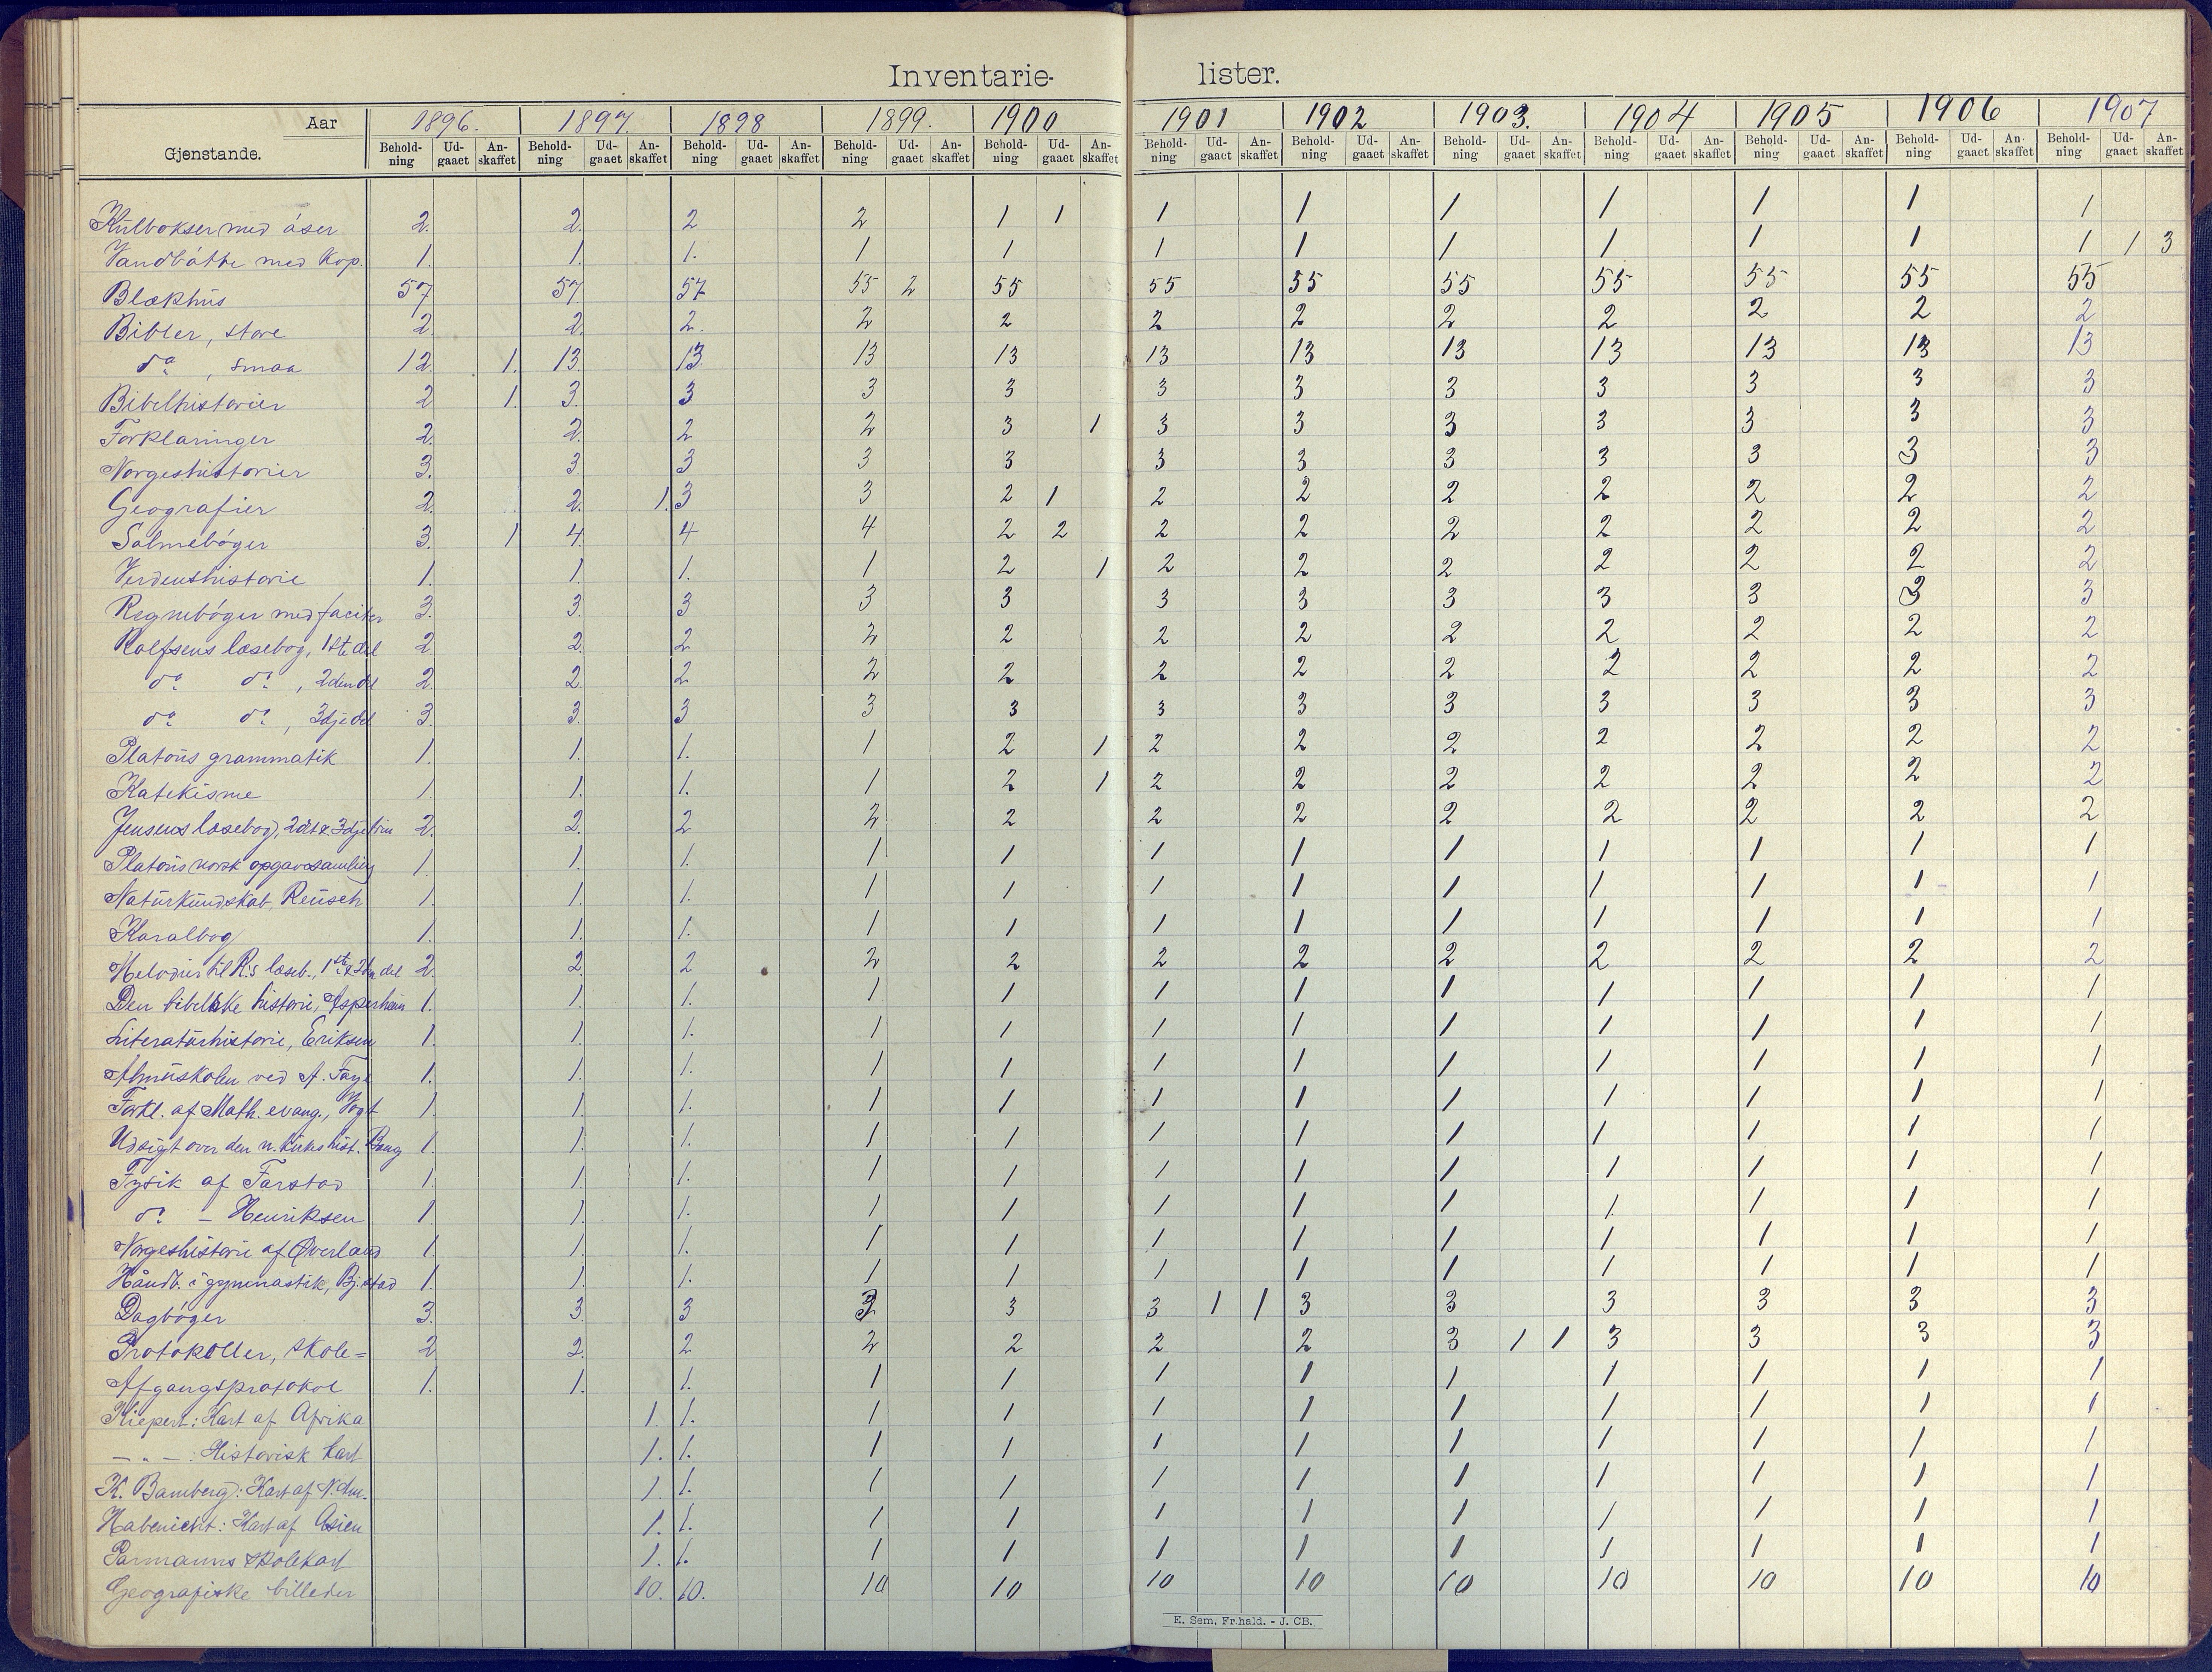 Inventarie- lister.
Aar 1896. 1897. 1898 1899. 1900 1901 1902 1903. 1904 1905 1906 1907
Gjenstande. Behold-ning Ud-gaaet An-skaffet Behold-ning Ud-gaaet An-skaffet Behold-ning Ud-gaaet An-skaffet Behold-ning Ud-gaaet An-skaffet Behold-ning Ud-gaaet An-skaffet Behold-ning Ud-gaaet An-skaffet Behold-ning Ud-gaaet An-skaffet Behold-ning Ud-gaaet An-skaffet Behold-ning Ud-gaaet An-skaffet Behold-ning Ud-gaaet An-skaffet Behold-ning Ud-gaaet An-skaffet Behold-ning Ud-gaaet An-skaffet
Kulbokser med åser 2. 2. 2 2 1 1 1 1 1 1 1 1 1
Vandbøtte med kop. 1. 1. 1. 1 1 1 1 1 1 1 1 1 1 3
Blækhus 57 57 57 55 2 55 55 55 55 55 55 55 55
Bibler, store 2. 2. 2. 2 2 2 2 2 2 2 2 2
do , smaa 12. 1. 13. 13. 13 13 13 13 13 13 13 13 13
Bibelhistorier 2 1. 3. 3 3 3 3 3 3 3 3 3 3
Forklaringer 2. 2. 2 2 3 1 3 3 3 3 3 3 3
Norgeshistorier 3. 3. 3 3 3 3 3 3 3 3 3 3
Geografier 2. 2. 1. 3 3 2 1 2 2 2 2 2 2 2
Salmebøger 3. 1 4. 4 4 2 2 2 2 2 2 2 2 2
Verdenshistorie 1. 1. 1. 1 2 1 2 2 2 2 2 2 2
Regnebøger med faciter 3. 3. 3 3 3 3 3 3 3 3 3 3
Rolfsens læsebog, 1ste del 2. 2. 2 2 2 2 2 2 2 2 2 2
do do , 2den del 2. 2. 2 2 2 2 2 2 2 2 2 2
do do , 3dje del 3. 3. 3 3 3 3 3 3 3 3 3 3
Platous grammatik 1. 1. 1. 1 2 1 2 2 2 2 2 2 2
Katekisme 1. 1. 1. 1 2 1 2 2 2 2 2 2 2
Jensens læsebog, 2det & 3dje trin 2. 2. 2 2 2 2 2 2 2 2 2 2
Platous norsk opgavesamling 1. 1. 1. 1 1 1 1 1 1 1 1 1
Naturkundskab, Reusch 1. 1. 1. 1 1 1 1 1 1 1 1 1
Koralbog 1. 1. 1. 1 1 1 1 1 1 1 1 1
Melodier til R.s læseb., 1ste & 2den del 2. 2. 2 2 2 2 2 2 2 2 2 2
Den bibelske historie, Asperheim 1. 1. 1. 1 1 1 1 1 1 1 1 1
Literaturhistorie, Eriksen 1. 1. 1. 1 1 1 1 1 1 1 1 1
Almuskolen ved A. Faye 1. 1. 1. 1 1 1 1 1 1 1 1 1
Forkl. af Math. evang., Vogt 1. 1. 1. 1 1 1 1 1 1 1 1 1
Udsigt over den n. kirkes hist. Bang 1. 1. 1. 1 1 1 1 1 1 1 1 1
Fysik af Farstad 1. 1. 1. 1 1 1 1 1 1 1 1 1
do – Henriksen 1. 1. 1. 1 1 1 1 1 1. 1 1 1
Norgeshistorie af Øverland 1. 1. 1. 1 1 1 1 1 1 1 1 1
Håndb. i gymnastik, Bj.stad 1. 1. 1. 1 1 1 1 1 1 1 1 1
Dagbøger 3. 3. 3 3 3 3 1 1 3 3 3 3 3 3
Protokoller, skole= 2 2. 2 2 2 2 2 3 1 1 3 3 3 3
Afgangsprotokol 1. 1. 1. 1 1 1 1 1 1 1 1 1
Kiepert: Kart af Afrika 1. 1. 1 1 1 1 1 1 1 1 1
– " – : Historisk kart 1. 1. 1 1 1 1 1 1 1 1 1
K. Bamberg: Kart af N. Am. 1. 1. 1 1 1 1 1 1 1 1 1
Habenicht: Kart af Asien 1. 1. 1 1 1 1 1 1 1 1 1
Parmanns skolekart 1. 1. 1 1 1 1 1 1 1 1 1
Geografiske billeder 10. 10. 10 10 10 10 10 10 10 10 10
E. Sem, Fr.hald. - J. CB.